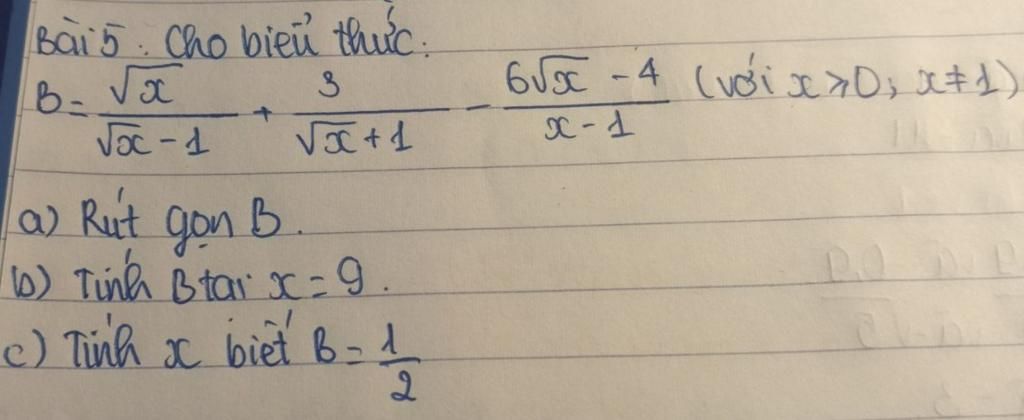 Bài 5. Cho biểu thức:
B = \frac{\sqrt{x}}{\sqrt{x} - 1} + \frac{3}{\sqrt{x} + 1} - \frac{6\sqrt{x} - 4}{x - 1} (với x ⩾ 0; x ≠ 1)
a) Rút gọn B.
b) Tính B tại x = 9.
c) Tính x biết B = \frac{1}{2}